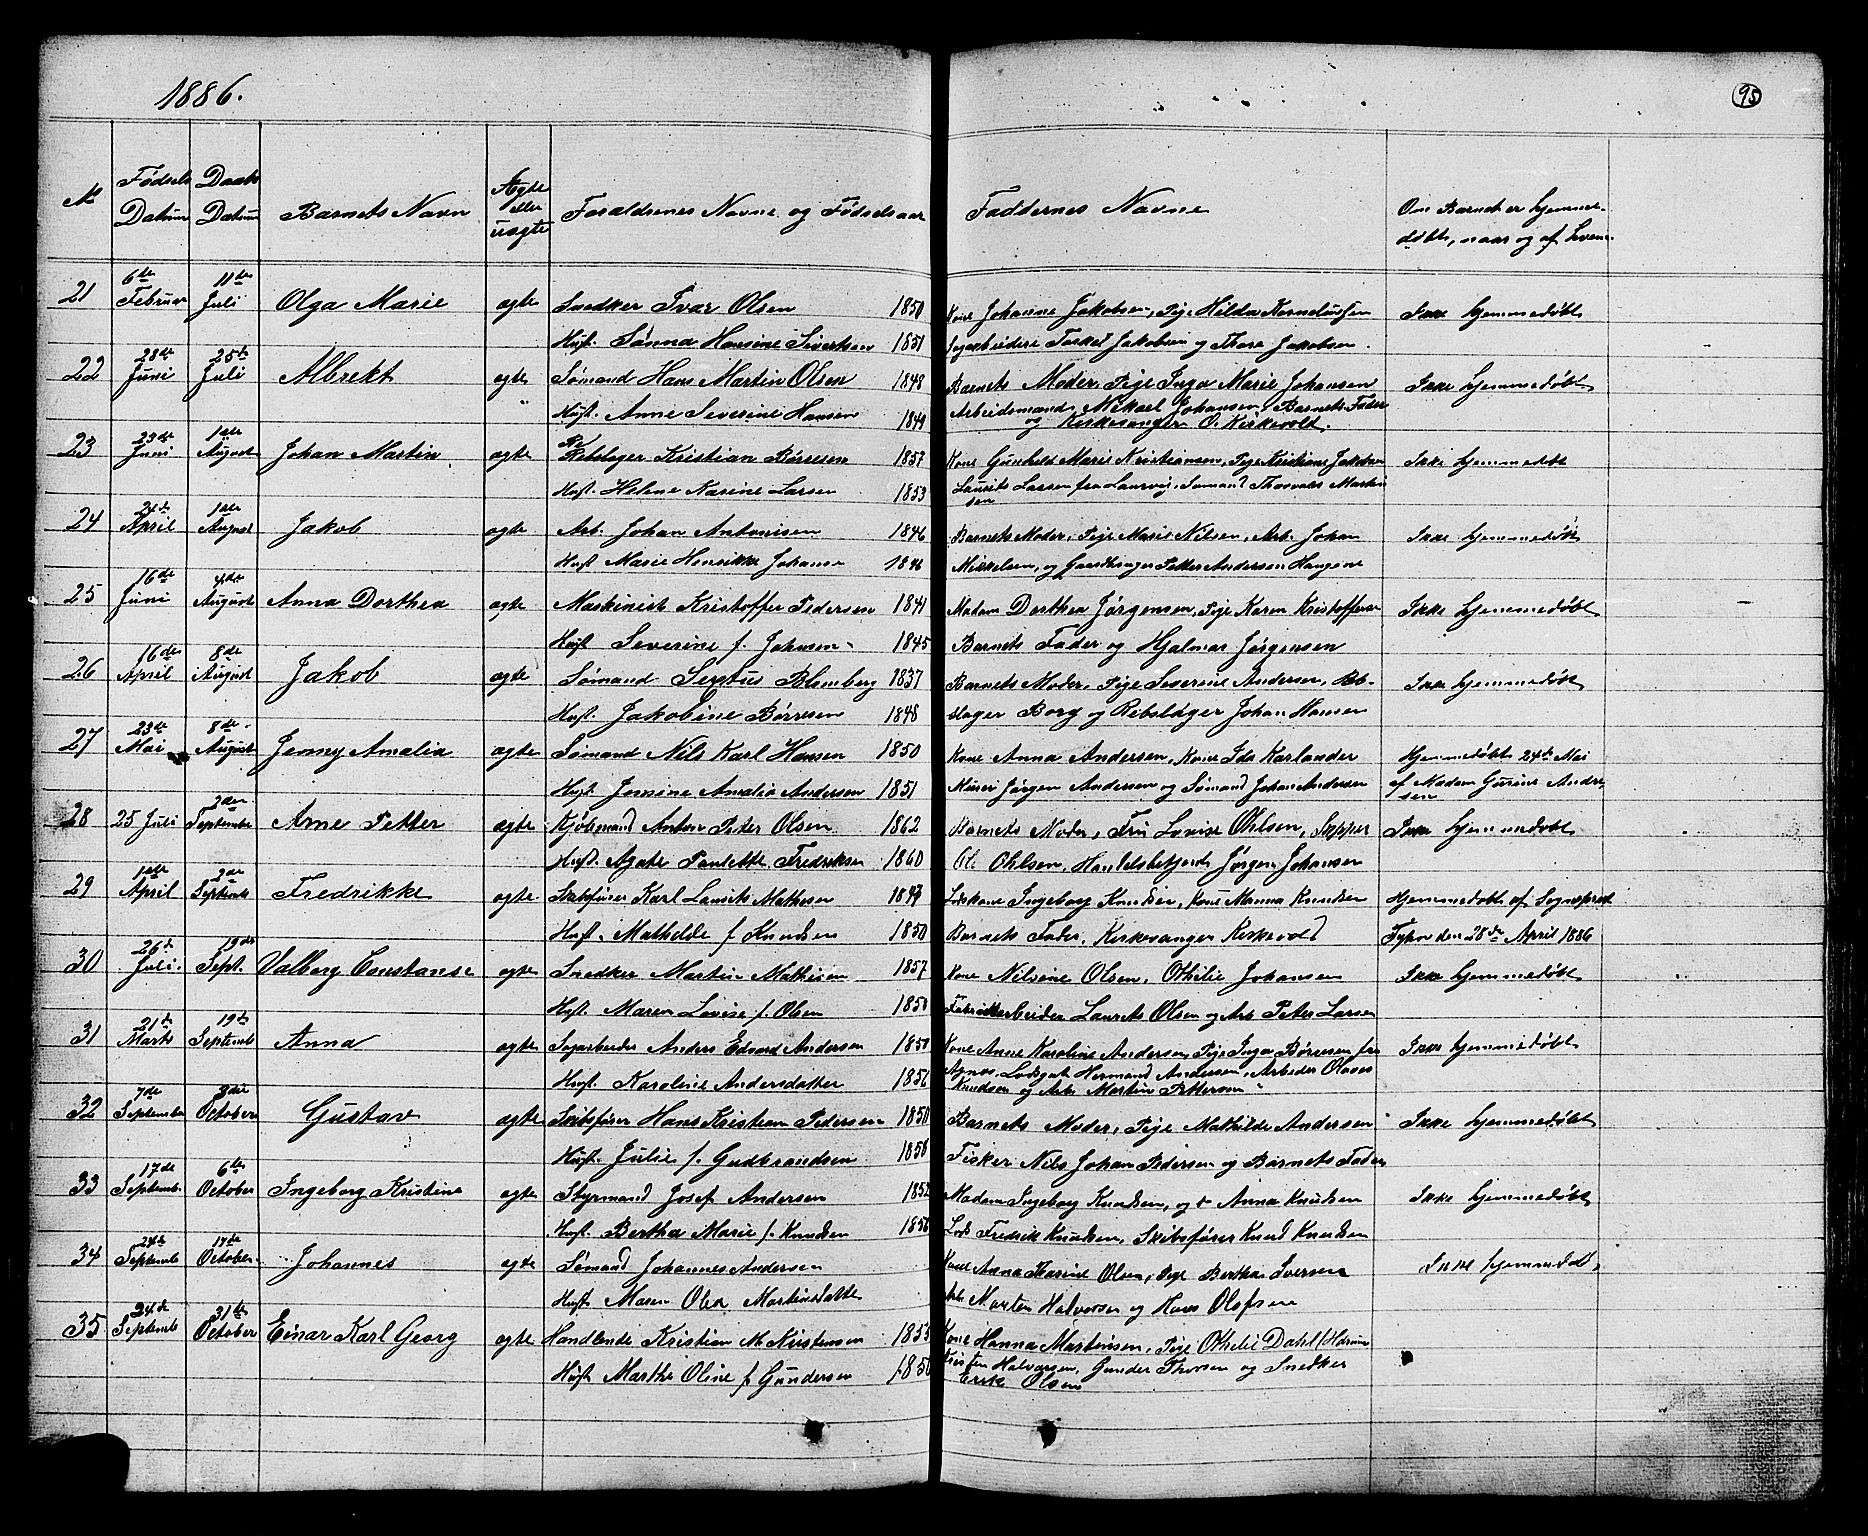 1886.
95
№ Fødsels Datum Daabs Datum Barnets Navn Ægte eller uægte Forældrenes Navne og Fødselsaar Faddernes Navne Om Barnet er hjemmedøbt, naar og af hvem
21 6te Februar 11te Juli Olga Marie ægte Snedker Ivar Olsen 1850 Kone Johanne Jakobsen, Pige Hilda Kornelussen Ikke hjemmedøbt
Hust. Hansine Sivertsen 1851 Jakobsen og Thore Jakobsen.
22 28de Juni 25de Juli Albrekt ægte Sømand Hans Martin Olsen 1848 Barnets Moder, Pige Inga Marie Johansen Ikke hjemmedøbt
Hust. Anne Severine Hansen 1849 Arbeidsmand Mikael Johansen, Barnets Fader
og Kirkesanger O. Kirkevold.
23 23de Juni 1ste August Johan Martin ægte Rebslager Kristian Børresen 1857 Kone Gunhild Marie Kristiansen, Pige Kristiane Jakobsen Ikke hjemmedøbt
Hust. Helene Karine Larsen 1853 Laurits Larsen fra Laurvig, Sømand Thorvald Martin
sen
24 April 1ste August Jakob ægte Arb. Johan Antonisen 1846 Barnets Moder, Pige Marie Nilsen, Arb. Johan Ikke hjemmedøbt
Hust Marie Henrikke Johanse 1846 Mikkelsen, og Gaardbruger Petter Andersen Haugene
25 16de Juni 4de August Anna Dorthea ægte Maskinist Kristoffer Pedersen 1841 Madam Dorthea Jørgensen, Pige Karen Kristoffersen Ikke hjemmedøbt
Hust Severine f. Johnsen 1845 Barnets Fader og Hjalmar Jørgensen
26 16de April 8de August Jakob ægte Sømand Sextus Blomberg 1837 Barnets Moder, Pige Severine Andersen, Reb- Ikke hjemmedøbt
Hust. Jakobine Børresen 1848 slager Borg og Rebslager Johan Hansen
27 23de Mai 8de August Jenny Amalia ægte Sømand Nils Karl Hansen 1850 Kone Anna Andersen, Kone Ida Karlander Hjemmedøbt 24de Mai
Hust. Jensine Amalia Andersen 1851 Murer Jørgen Andersen og Sømand Johan Andersen af Madam Gurine Ander-
sen
28 25 Juli 2den September Arne Petter ægte Kjøbmand Anton Peter Olsen 1862 Barnets Moder, Frk Lovise Ohlsen, Skipper Ikke hjemmedøbt
Hust. Agate Paulette Fredriksen 1860 Ol. Ohlsen, Handelsbetjent Jørgen Johansen
29 1ste April 2de Septemb Fredrikke ægte Skibsfører Karl Laurits Mathesen 1849 Lodskone Ingeborg Knudsen, Kone Manna Knudsen Hjemmedøbt af Sognepræst
Hust. Mathilde f Knudsen 1850 Barnets Fader, Kirkesanger Kirkevold Sypn den 28de April 1886
30 26de Juli 19de Sept. Valborg Constanse ægte Snedker Martin Mathisen 1857 Kone Nilsine Olsen, Othilie Johansen Ikke hjemmedøbt
Hust. Maren Lovise f. Olsen 1850 Fabrikkarbeider Laurits Olsen og Arb Peter Larsen
31 21de Marts 19de Septemb Anna ægte Sagarbeider Anders Edvard Andersen 1850 Kone Anne Karoline Andersen, Pige Inga Børresen fra Ikke hjemmedøbt
Hust. Karoline Andersdatter 1856 Agnes, Lodsgut Hermand Andersen, Arbeder Olaves
Knudsen og Arb Martin Pettersen
32 7de September 3die October Gustav ægte Skibsfører Hans Kristian Pedersen 1850 Barnets Moder, Pige Mathilde Andersen Ikke hjemmedøbt
Hust. Julie f. Gudbrandsen 1858 Fisker Nils Johan Pedersen og Barnets Fader
33 17de Septemb. 6te October Ingeborg Kristine ægte Styrmand Josef Andersen 1852 Madam Ingeborg Knudsen, og Anna Knudsen Ikke hjemmedøbt
Hust. Bertha Marie f. Knudsen 1858 Lods Fredrik Knudsen, Skibsfører Knud Knudsen
34 Septemb 17de October Johannes ægte Sømand Johannes Andersen Kone Anna Thorine Olsen, Pige Bertha Iversen Ikke hjemmedøbt
Hust Maren Olea Martinsdatte Arb. Morten Halvorsen og Hans Olafsen
35 24de Septemb 31te October Einar Karl Georg ægte Handlende Kristian M. Kristensen 1855 Kone Hanna Martinsen, Pige Othelie Dahl
Hust Marthe Oline f Gundersen 1856 Kristen Halvorsen, Gunder Thorsen og Snedker
Erik Olsen